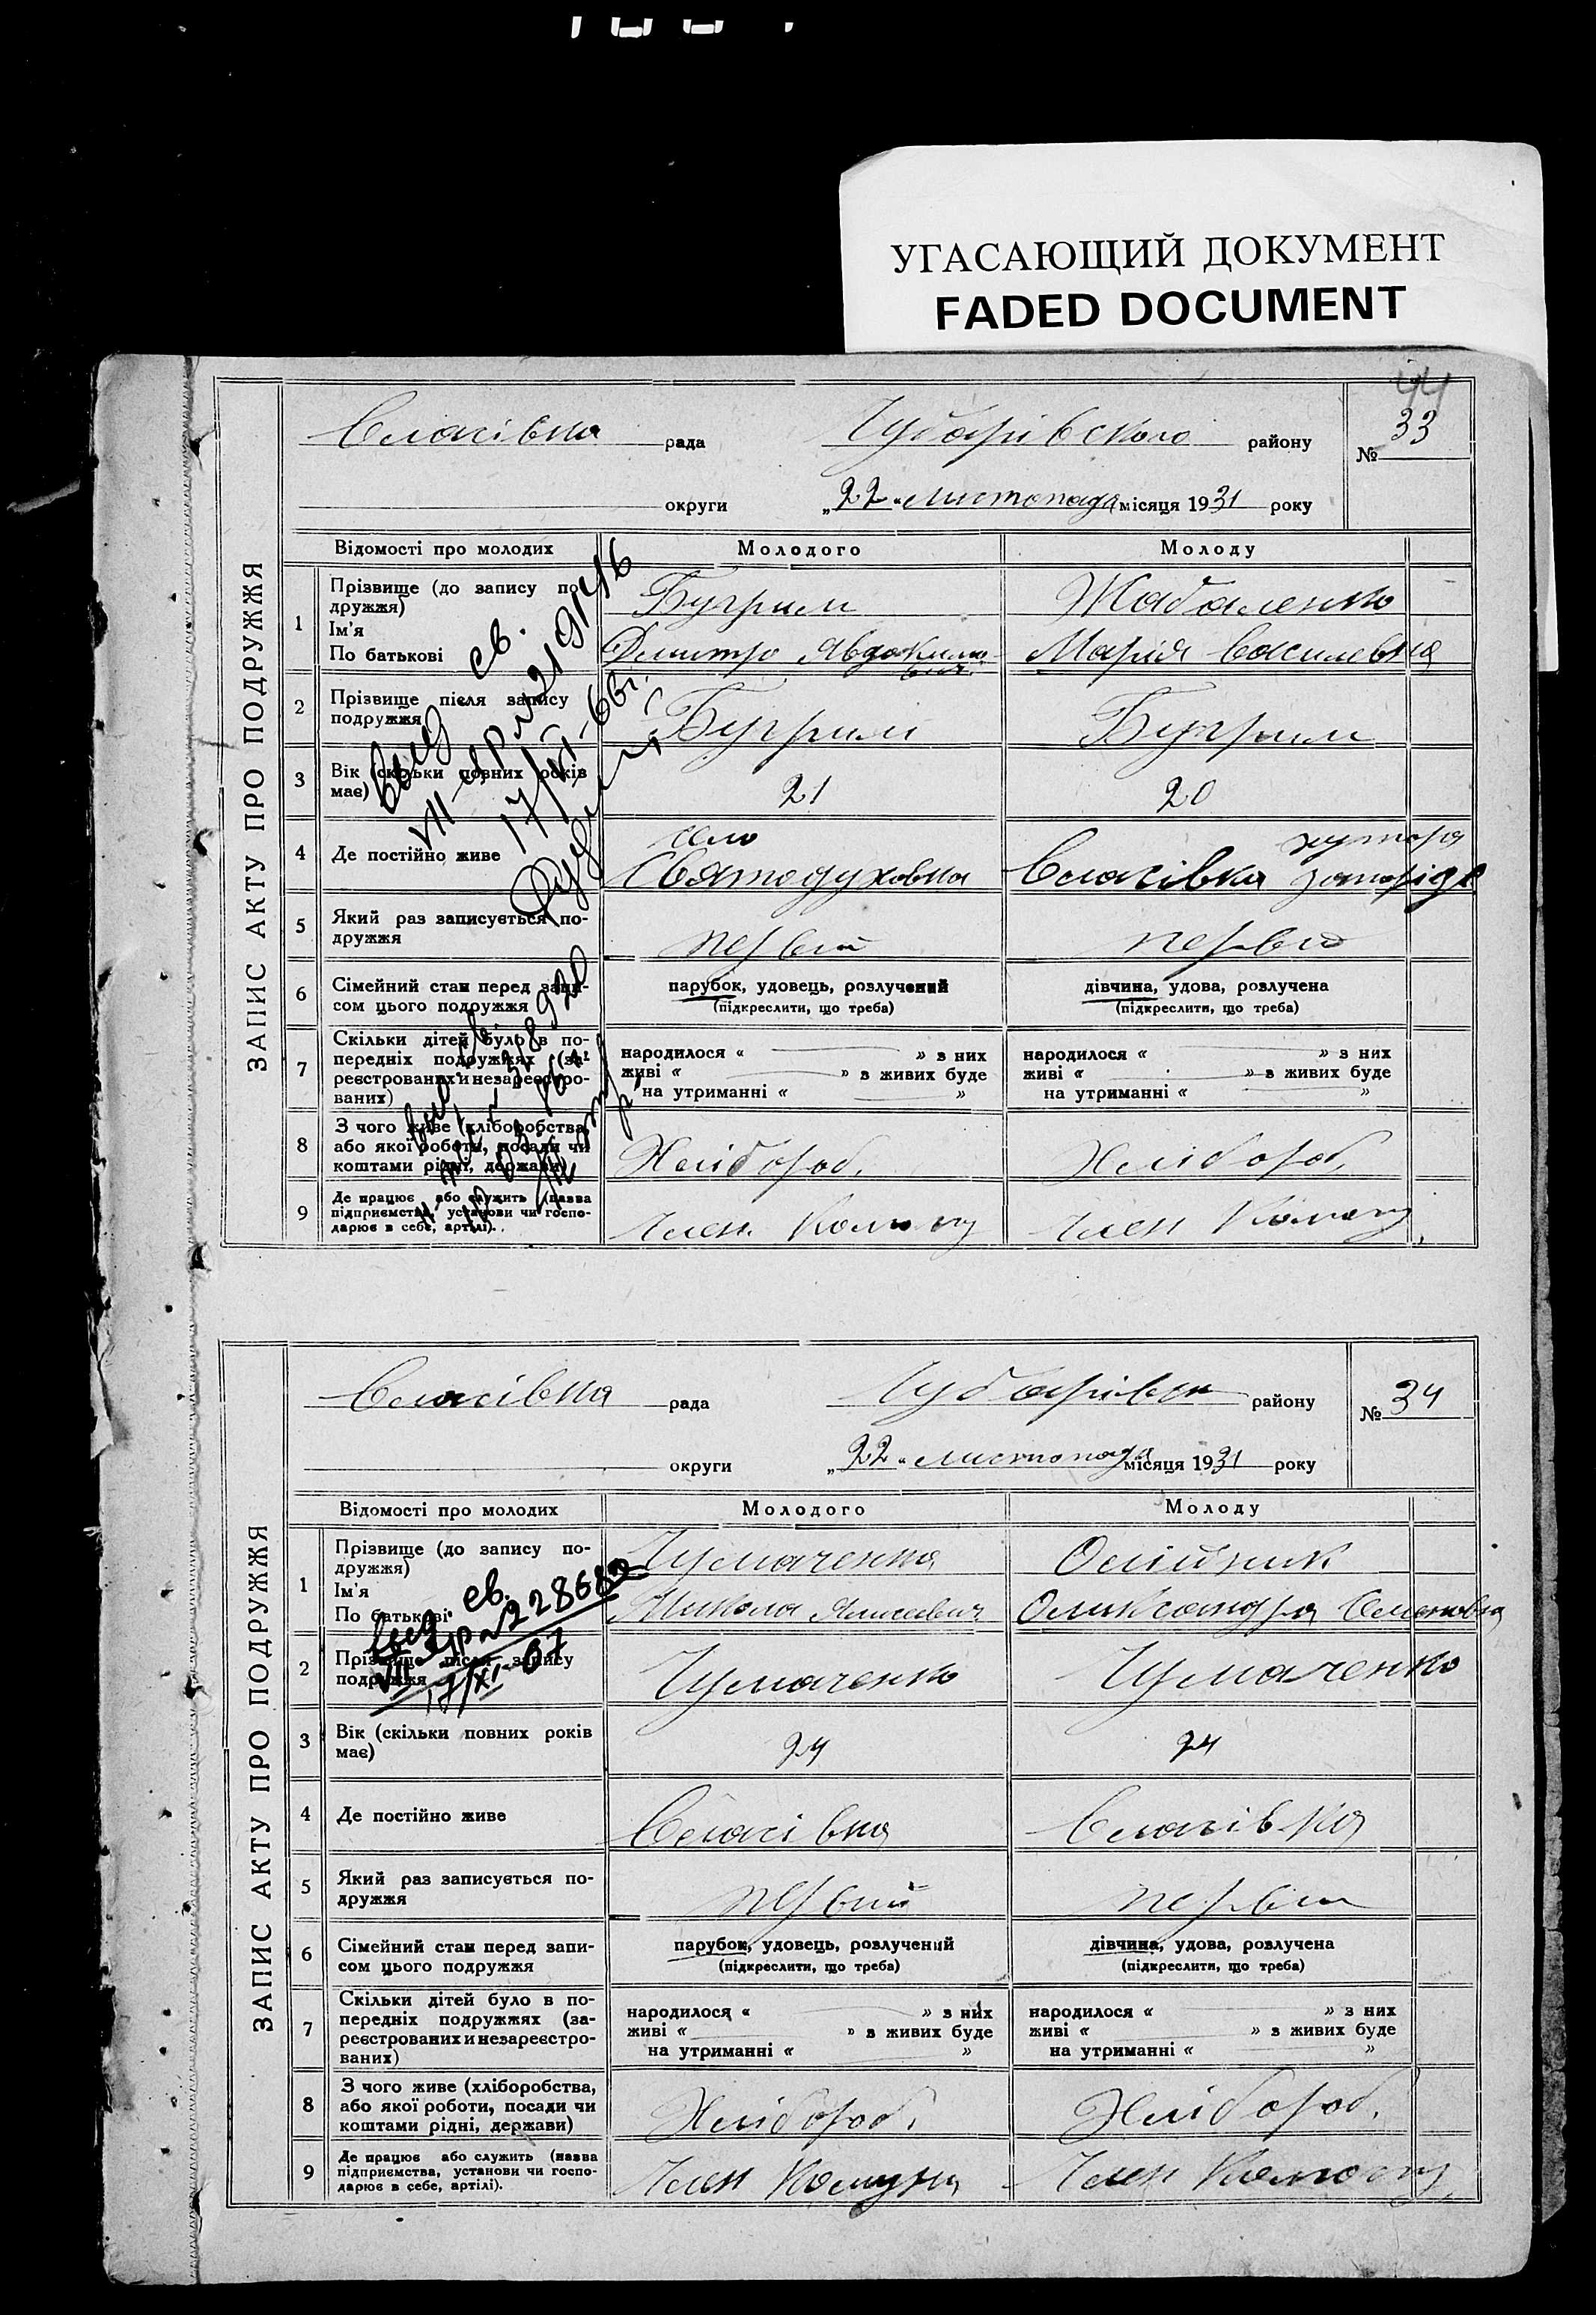 УГАСАЮЩИЙ ДОКУМЕНТ
FADED DOCUMENT
44
ЗАПИС АКТУ ПРО ПОДРУЖЖЯ
Власівка рада Чубарівского району № 33
округи „22“ Листопада місяця 1931 року
Відомості про молодих Молодого Молоду
1 Прізвище (до запису подружжя) Бугрим Жабаленко
Ім'я
По батькові Дмитро Явдокимович Марія Василевна
2 Прізвище після запису подружжя Бугрим Бугрим
3 Вік (скільки повних років має) 21 20
4 Де постійно живе село Святодуховка Власівка хутора
5 Який раз записується подружжя первий первий
6 Сімейний стан перед записом цього подружжя парубок, удовець, розлучений дівчина, удова, розлучена
(підкреслити, що треба) (підкреслити, що треба)
7 Скільки дітей було в попередніх подружжях (зареєстрованих и незареєстрованих) народилося « » з них народилося « » з них
живі « » з живих буде живі « » з живих буде
на утриманні « » на утриманні « »
8 З чого живе (хліборобства, або якої роботи, посади чи коштами рідні, держави) Хлібороб. Хлібороб.
9 Де працює або служить (назва підприємства, установи чи господарює в себе, артілі). Член Комуни Член Комуни
ЗАПИС АКТУ ПРО ПОДРУЖЖЯ
Власівка рада Чубарівськ району № 34
округи „22“ Листопада місяця 1931 року
Відомості про молодих Молодого Молоду
1 Прізвище (до запису подружжя) Чумаченко Олійник
Ім'я
По батькові Микола Олександра Семеновна
2 Прізвище після запису подружжя Чумаченко Чумаченко
3 Вік (скільки повних років має) 24 24
4 Де постійно живе Власівка Власівка
5 Який раз записується подружжя первий первий
6 Сімейний стан перед записом цього подружжя парубок, удовець, розлучений дівчина, удова, розлучена
(підкреслити, що треба) (підкреслити, що треба)
7 Скільки дітей було в попередніх подружжях (зареєстрованих и незареєстрованих) народилося « » з них народилося « » з них
живі « » з живих буде живі « » з живих буде
на утриманні « » на утриманні « »
8 З чого живе (хліборобства, або якої роботи, посади чи коштами рідні, держави) Хлібороб. Хлібороб.
9 Де працює або служить (назва підприємства, установи чи господарює в себе, артілі). Член Комуни Член Комуни